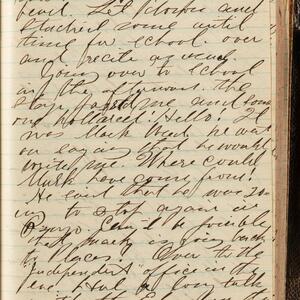 bed. Got down and
studied some until
time for school. over
and recite as usual
Going over to school
in the afternoon. the
stage passed me and some
one hollared! Hello! It
was Mark he went
on saying that he would
write me. Where could
Mark have come from?
He said that he was go
ing to stop again in
Can it be possible
that Mark is going back
to Over to the
"Independent" office in the
eve. Had a long talk
with